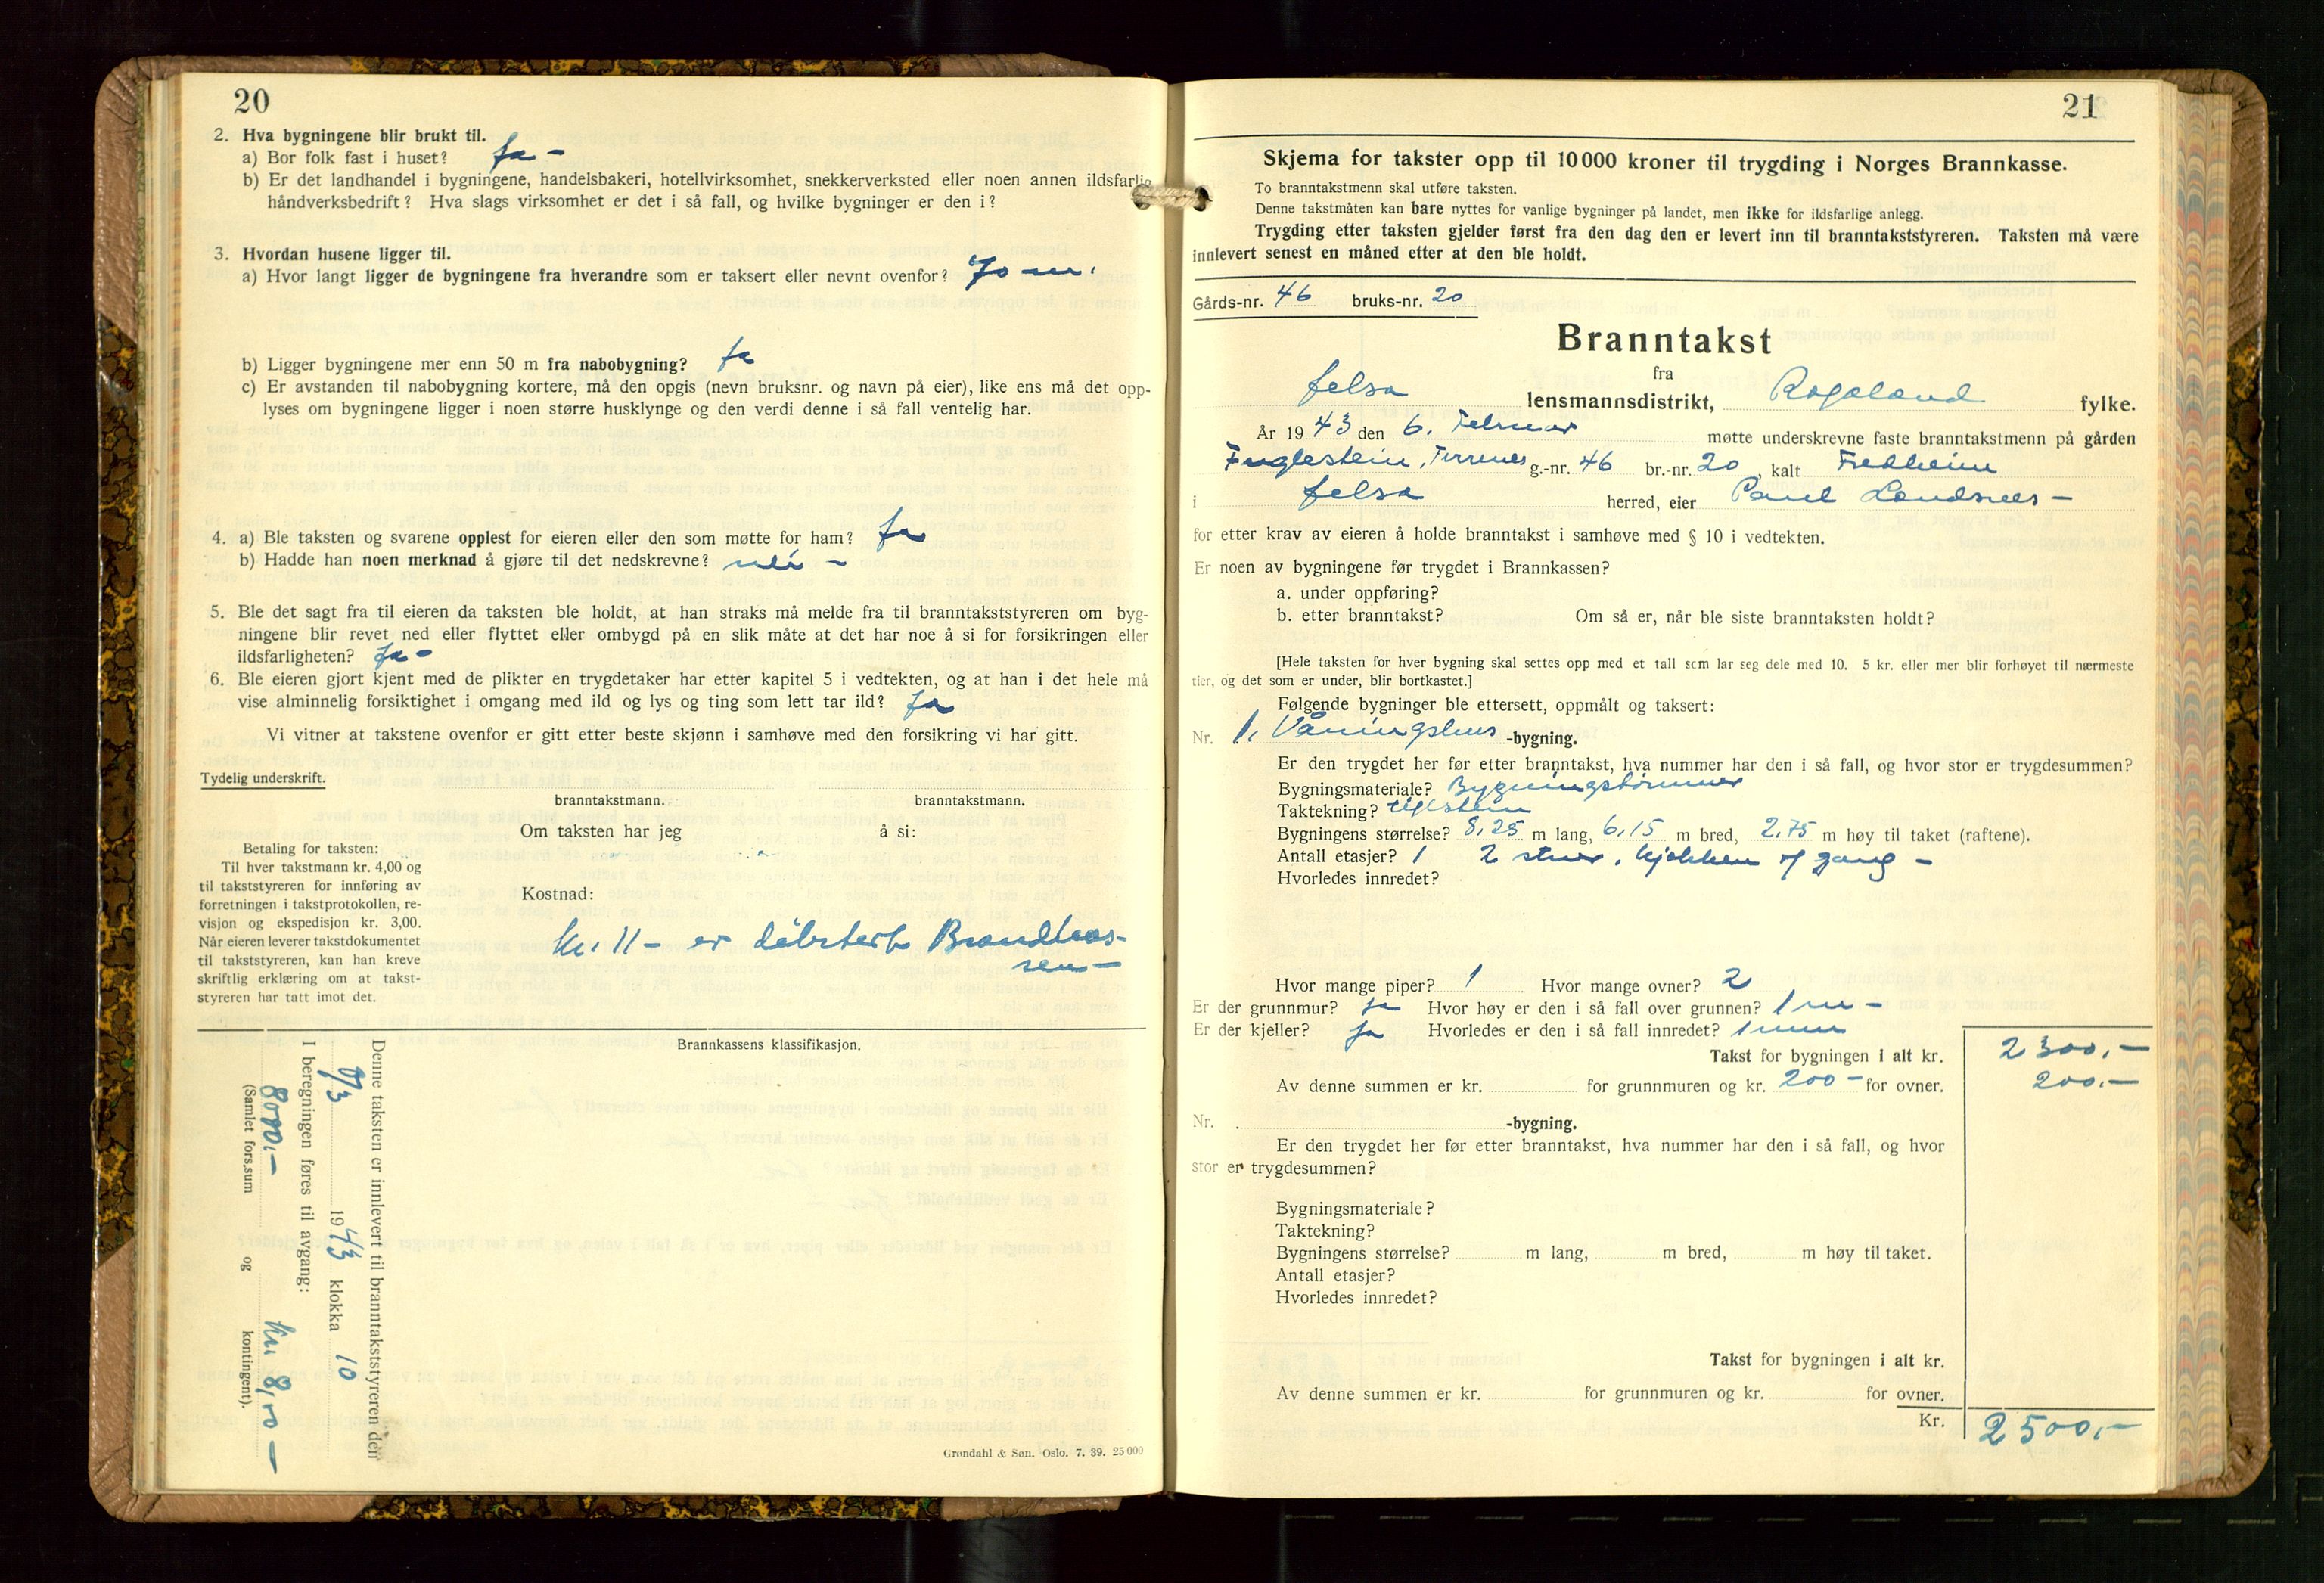 20
2. Hva bygningene blir brukt til.
a) Bor folk fast i huset? Ja –
b) Er det landhandel i bygningene, handelsbakeri, hotellvirksomhet, snekkerverksted eller noen annen ildsfarlig
håndverksbedrift? Hva slags virksomhet er det i så fall, og hvilke bygninger er den i?
3. Hvordan husene ligger til.
a) Hvor langt ligger de bygningene fra hverandre som er taksert eller nevnt ovenfor? 70 m.
b) Ligger bygningene mer enn 50 m fra nabobygning? Ja
c) Er avstanden til nabobygning kortere, må den opgis (nevn bruksnr. og navn på eier), like ens må det opp-
lyses om bygningene ligger i noen større husklynge og den verdi denne i så fall ventelig har.
4. a) Ble taksten og svarene opplest for eieren eller den som møtte for ham? Ja
b) Hadde han noen merknad å gjøre til det nedskrevne? nei –
5. Ble det sagt fra til eieren da taksten ble holdt, at han straks må melde fra til branntakststyreren om byg-
ningene blir revet ned eller flyttet eller ombygd på en slik måte at det har noe å si for forsikringen eller
ildsfarligheten? Ja –
6. Ble eieren gjort kjent med de plikter en trygdetaker har etter kapitel 5 i vedtekten, og at han i det hele må
vise alminnelig forsiktighet i omgang med ild og lys og ting som lett tar ild? Ja
Vi vitner at takstene ovenfor er gitt etter beste skjønn i samhøve med den forsikring vi har gitt.
Tydelig underskrift.
branntakstmann. branntakstmann.
Om taksten har jeg å si:
Betaling for taksten:
Til hver takstmann kr. 4,00 og
til takststyreren for innføring av
forretningen i takstprotokollen, re-
visjon og ekspedisjon kr. 3,00.
Når eieren leverer takstdokumentet
til takststyreren, kan han kreve
skriftlig erklæring om at takst-
styreren har tatt imot det.
Kostnad:
kr. 11 – er debitert Brandkas-
sen –
Brannkassens klassifikasjon.
Denne taksten er innlevert til branntakststyreren den
8/3 1943 klokka 10
I beregningen føres til avgang:
8000,– kr. 8,00 –
(Samlet fors.sum og kontingent).
Grøndahl & Søn. Oslo. 7. 39. 25 000
21
Skjema for takster opp til 10 000 kroner til trygding i Norges Brannkasse.
To branntakstmenn skal utføre taksten.
Denne takstmåten kan bare nyttes for vanlige bygninger på landet, men ikke for ildsfarlige anlegg.
Trygding etter taksten gjelder først fra den dag den er levert inn til branntakststyreren. Taksten må være
innlevert senest en måned etter at den ble holdt.
Gårds-nr. 46 bruks-nr. 20
Branntakst
fra
Jelsa lensmannsdistrikt, Rogaland fylke.
År 1943 den 6. Februar møtte underskrevne faste branntakstmenn på gården
Fuglestein, g.-nr. 46 br.-nr. 20, kalt Fredheim
i Jelsa herred, eier Paul Landsnes –
for etter krav av eieren å holde branntakst i samhøve med § 10 i vedtekten.
Er noen av bygningene før trygdet i Brannkassen?
a. under oppføring?
b. etter branntakst? Om så er, når ble siste branntaksten holdt?
[Hele taksten for hver bygning skal settes opp med et tall som lar seg dele med 10. 5 kr. eller mer blir forhøyet til nærmeste
tier, og det som er under, blir bortkastet.]
Følgende bygninger ble ettersett, oppmålt og taksert:
Nr. 1. Våningshus -bygning.
Er den trygdet her før etter branntakst, hva nummer har den i så fall, og hvor stor er trygdesummen?
Bygningsmateriale? Bygningstømmer
Taktekning? teglstein
Bygningens størrelse? 8,25 m lang, 6,15 m bred, 2,75 m høy til taket (raftene).
Antall etasjer? 1 2 stuer, kjøkken og gang –
Hvorledes innredet?
Hvor mange piper? 1 Hvor mange ovner? 2
Er der grunnmur? ja Hvor høy er den i så fall over grunnen? 1 m –
Er der kjeller? ja Hvorledes er den i så fall innredet? 1 rum
Takst for bygningen i alt kr. 2300,–
Av denne summen er kr. for grunnmuren og kr. 200 – for ovner. 200,–
Nr. -bygning.
Er den trygdet her før etter branntakst, hva nummer har den i så fall, og hvor
stor er trygdesummen?
Bygningsmateriale?
Taktekning?
Bygningens størrelse? m lang, m bred, m høy til taket.
Antall etasjer?
Hvorledes innredet?
Takst for bygningen i alt kr.
Av denne summen er kr. for grunnmuren og kr. for ovner.
Kr. 2500,–